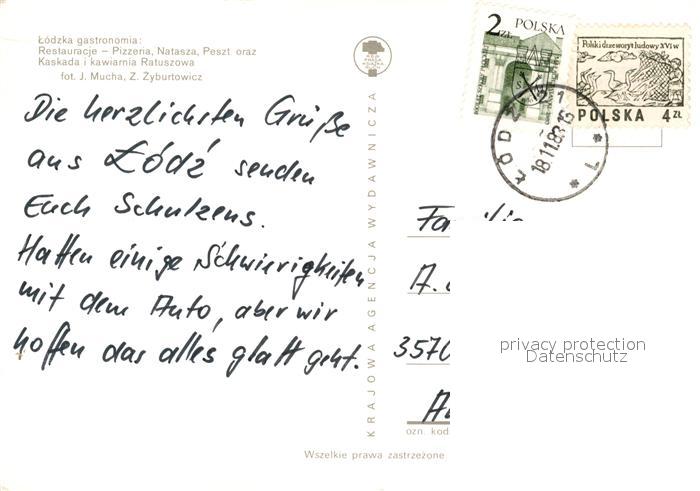 Łódzka gastronomia:
Restauracje – Pizzeria, Natasza, Peszt oraz
Kaskada i kawiarnia Ratuszowa
fot. J. Mucha, Z. Żyburtowicz
Die herzlichsten Grüße
aus Łódź senden
Euch Schulzens.
Hatten einige Schwierigkeiten
mit dem Auto, aber wir
hoffen das alles glatt geht.
KRAJOWA AGENCJA WYDAWNICZA
2 ZŁ POLSKA
Polski drzeworyt ludowy XVI w
POLSKA 4 ZŁ
ŁÓDŹ 1
18.11.83
A.
3570
ozn. kod
Wszelkie prawa zastrzeżone
privacy protection
Datenschutz